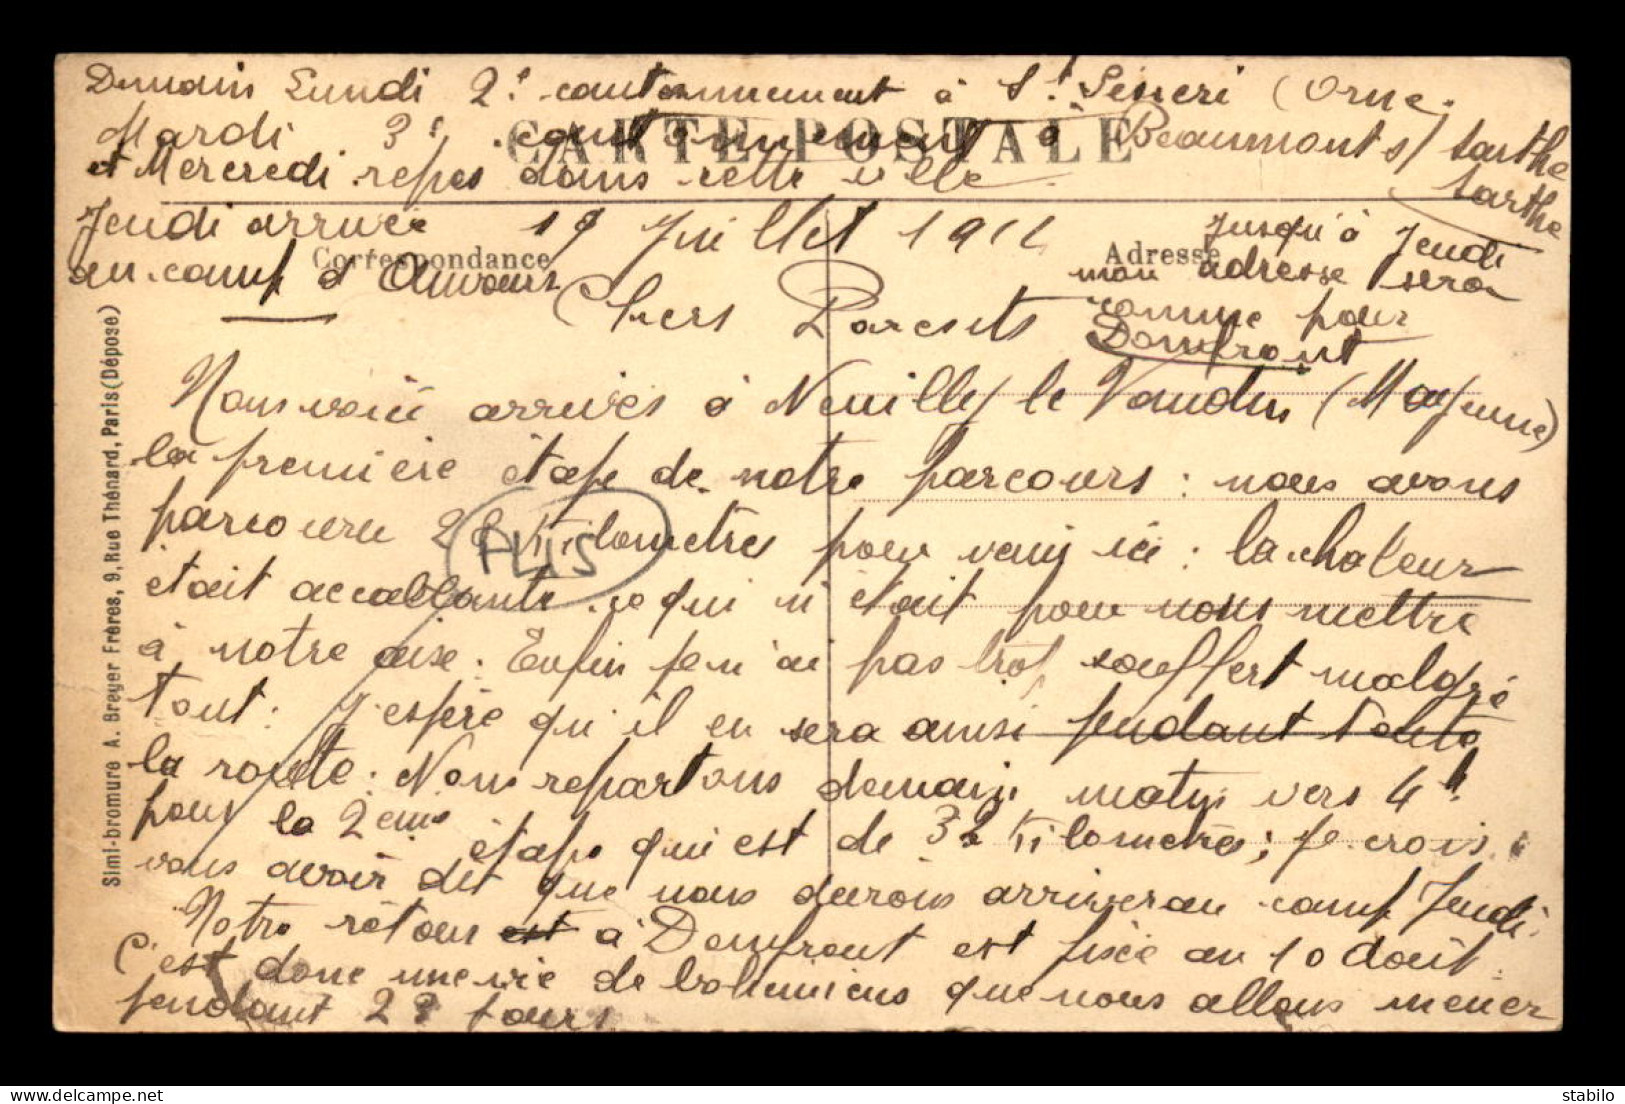 Demain Lundi 2e cantonnement à St Séneri (Orne.
Mardi 3e cantonnement à (Beaumont s/ Sarthe
Sarthe
et Mercredi repos dans cette ville.
CARTE POSTALE
Jeudi arrivée
au camp d'Auvours
Correspondance
Adresse
Jusqu'à Jeudi
mon adresse sera
comme pour
Domfront
Juillet 191
Chers Parents
Nous voici arrivés à Neuilly le Vendin (Mayenne)
la première étape de notre parcours : nous avons
parcouru 28 Kilomètres pour venir ici : la chaleur
était accablante ce qui n'était pour nous mettre
à notre aise. Enfin je n'ai pas trop souffert malgré
tout : J'espère qu'il en sera ainsi pendant toute
la route : Nous repartons demain matin vers 4h
pour la 2eme étape qui est de 32 Kilomètres ; je crois
vous avoir dit que nous devons arriver au camp Jeudi.
Notre retour est à Domfront est fixée au 10 Août.
C'est donc une vie de bohémiens que nous allons mener
pendant 28 jours
PLIS
Simi-bromure A. Breger Frères, 9, Rue Thénard, Paris (Déposé)
stabilo
delcampe.net